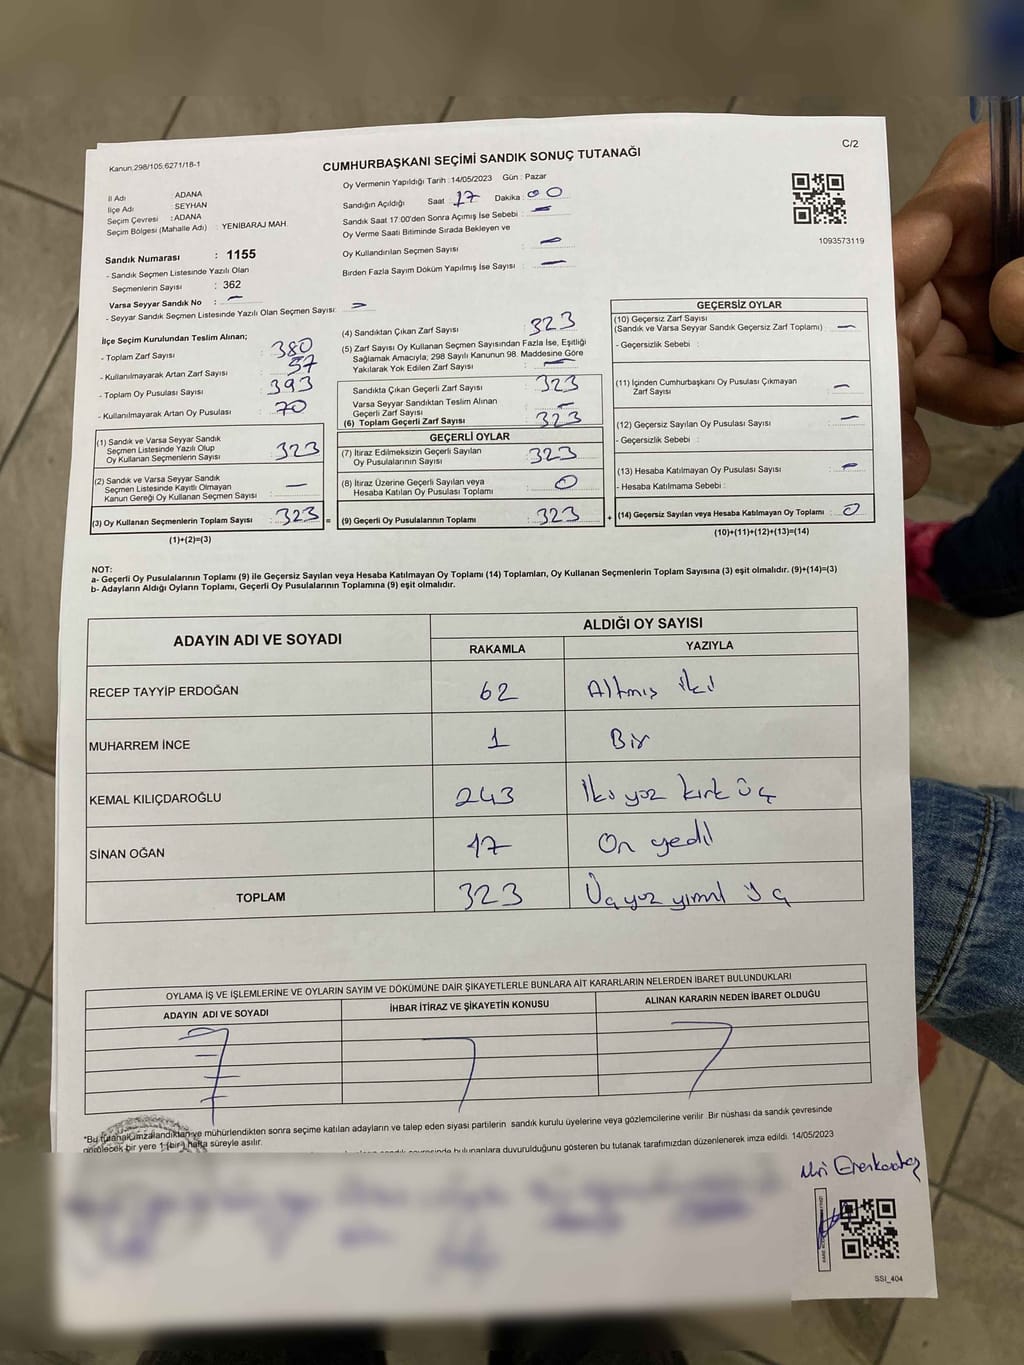 Kanun.298/105:6271/18-1
CUMHURBAŞKANI SEÇİMİ SANDIK SONUÇ TUTANAĞI
C/2
İl Adı : ADANA
İlçe Adı : SEYHAN
Seçim Çevresi : ADANA
Seçim Bölgesi (Mahalle Adı) : YENİBARAJ MAH.
Oy Vermenin Yapıldığı Tarih : 14/05/2023 Gün : Pazar
Sandığın Açıldığı Saat : 17 Dakika : 00
Sandık Saat 17:00'den Sonra Açımış İse Sebebi : —
Oy Verme Saati Bitiminde Sırada Bekleyen ve
Oy Kullandırılan Seçmen Sayısı : —
Birden Fazla Sayım Döküm Yapılmış İse Sayısı : —
1093573119
Sandık Numarası : 1155
- Sandık Seçmen Listesinde Yazılı Olan
Seçmenlerin Sayısı : 362
Varsa Seyyar Sandık No : —
- Seyyar Sandık Seçmen Listesinde Yazılı Olan Seçmen Sayısı: —
İlçe Seçim Kurulundan Teslim Alınan;
- Toplam Zarf Sayısı : 380
- Kullanılmayarak Artan Zarf Sayısı : 57
- Toplam Oy Pusulası Sayısı : 393
- Kullanılmayarak Artan Oy Pusulası : 70
(1) Sandık ve Varsa Seyyar Sandık
Seçmen Listesinde Yazılı Olup
Oy Kullanan Seçmenlerin Sayısı : 323
(2) Sandık ve Varsa Seyyar Sandık
Seçmen Listesinde Kayıtlı Olmayan
Kanun Gereği Oy Kullanan Seçmen Sayısı : —
(3) Oy Kullanan Seçmenlerin Toplam Sayısı : 323 =
(1)+(2)=(3)
(4) Sandıktan Çıkan Zarf Sayısı : 323
(5) Zarf Sayısı Oy Kullanan Seçmen Sayısından Fazla İse, Eşitliği
Sağlamak Amacıyla; 298 Sayılı Kanunun 98. Maddesine Göre
Yakılarak Yok Edilen Zarf Sayısı : —
Sandıkta Çıkan Geçerli Zarf Sayısı : 323
Varsa Seyyar Sandıktan Teslim Alınan
Geçerli Zarf Sayısı : —
(6) Toplam Geçerli Zarf Sayısı : 323
GEÇERLİ OYLAR
(7) İtiraz Edilmeksizin Geçerli Sayılan
Oy Pusulalarının Sayısı : 323
(8) İtiraz Üzerine Geçerli Sayılan veya
Hesaba Katılan Oy Pusulası Toplamı : 0
(9) Geçerli Oy Pusulalarının Toplamı : 323 +
GEÇERSİZ OYLAR
(10) Geçersiz Zarf Sayısı
(Sandık ve Varsa Seyyar Sandık Geçersiz Zarf Toplamı) : —
- Geçersizlik Sebebi :
(11) İçinden Cumhurbaşkanı Oy Pusulası Çıkmayan
Zarf Sayısı : —
(12) Geçersiz Sayılan Oy Pusulası Sayısı : —
- Geçersizlik Sebebi :
(13) Hesaba Katılmayan Oy Pusulası Sayısı : —
- Hesaba Katılmama Sebebi :
(14) Geçersiz Sayılan veya Hesaba Katılmayan Oy Toplamı : 0
(10)+(11)+(12)+(13)=(14)
NOT:
a- Geçerli Oy Pusulalarının Toplamı (9) ile Geçersiz Sayılan veya Hesaba Katılmayan Oy Toplamı (14) Toplamları, Oy Kullanan Seçmenlerin Toplam Sayısına (3) eşit olmalıdır. (9)+(14)=(3)
b- Adayların Aldığı Oyların Toplamı, Geçerli Oy Pusulalarının Toplamına (9) eşit olmalıdır.
ADAYIN ADI VE SOYADI
ALDIĞI OY SAYISI
RAKAMLA YAZIYLA
RECEP TAYYİP ERDOĞAN 62 Altmış iki
MUHARREM İNCE 1 Bir
KEMAL KILIÇDAROĞLU 243 İki yüz kırk üç
SİNAN OĞAN 17 On yedi
TOPLAM 323 Üç yüz yirmi üç
OYLAMA İŞ VE İŞLEMLERİNE VE OYLARIN SAYIM VE DÖKÜMÜNE DAİR ŞİKAYETLERLE BUNLARA AİT KARARLARIN NELERDEN İBARET BULUNDUKLARI
ADAYIN ADI VE SOYADI İHBAR İTİRAZ VE ŞİKAYETİN KONUSU ALINAN KARARIN NEDEN İBARET OLDUĞU
*Bu tutanak imzalandıktan ve mühürlendikten sonra seçime katılan adayların ve talep eden siyasi partilerin sandık kurulu üyelerine veya gözlemcilerine verilir. Bir nüshası da sandık çevresinde
görülecek bir yere 1 (bir) hafta süreyle asılır.
bulunanlara duyurulduğunu gösteren bu tutanak tarafımızdan düzenlenerek imza edildi. 14/05/2023
SSI_404